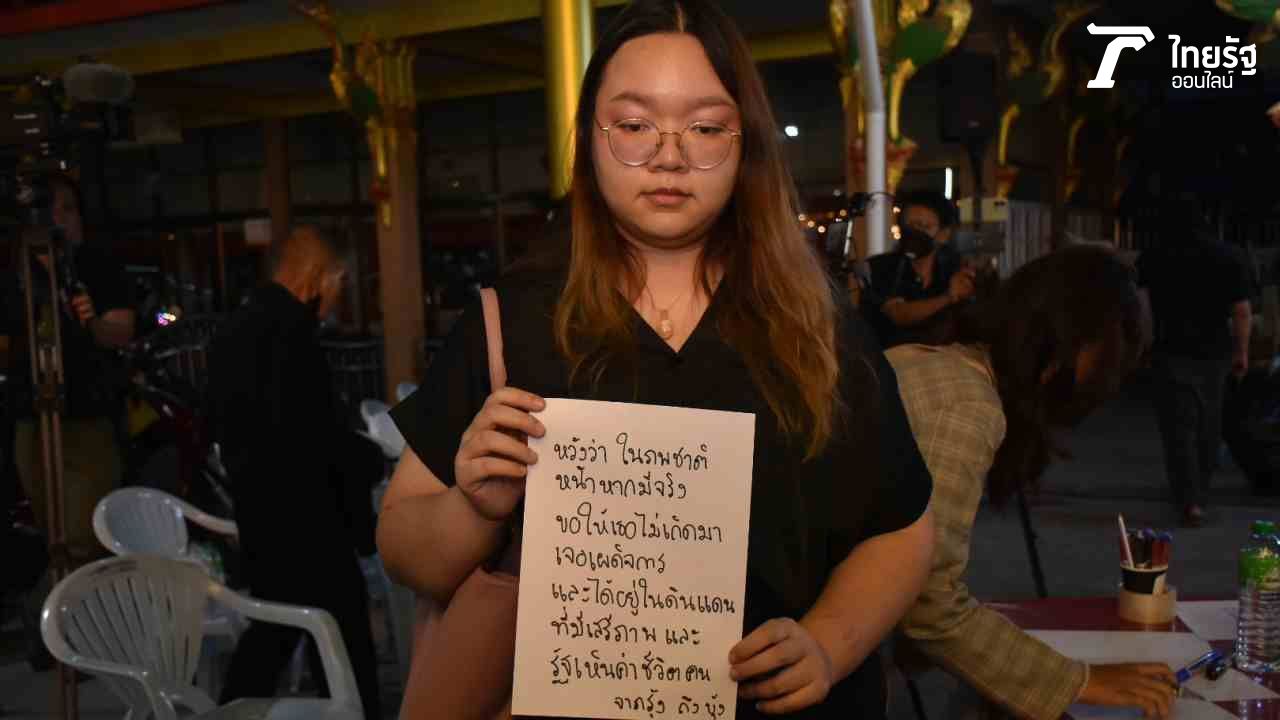 ไทยรัฐ
ออนไลน์
หวังว่า ในภพชาติ
หน้าหากมีจริง
ขอให้เธอไม่เกิดมา
เจอเผด็จการ
และได้อยู่ในดินแดน
ที่มีเสรีภาพ และ
รัฐเห็นค่าชีวิตคน
จากรุ้ง ถึงบุ้ง